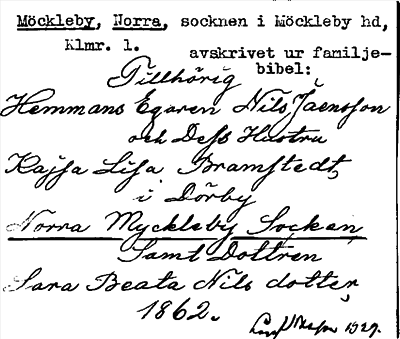 Möckleby, Norra, socknen i Möckleby hd,
Klmr. l.
avskrivet ur familje-
bibel:
Tillhörig
Hemmans Egaren Nils Jaensson
och Dess Hustru
Kajsa Lisa Bramstedt,
i Dörby
Norra Myckleby Socken,
Samt Dottren
Sara Beata Nils dotter,
1862.
1929.